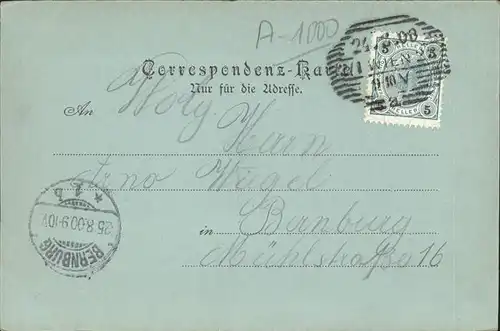 A-1000
24. 8. 00
WIEN
5 HELLER 5
Correspondenz-Karte
Nur für die Adresse.
An Wolg. Herrn
Arno Nagel
in Bernburg
Mühlstraße 16
BERNBURG
25.8.00.9-10V
* 1 b